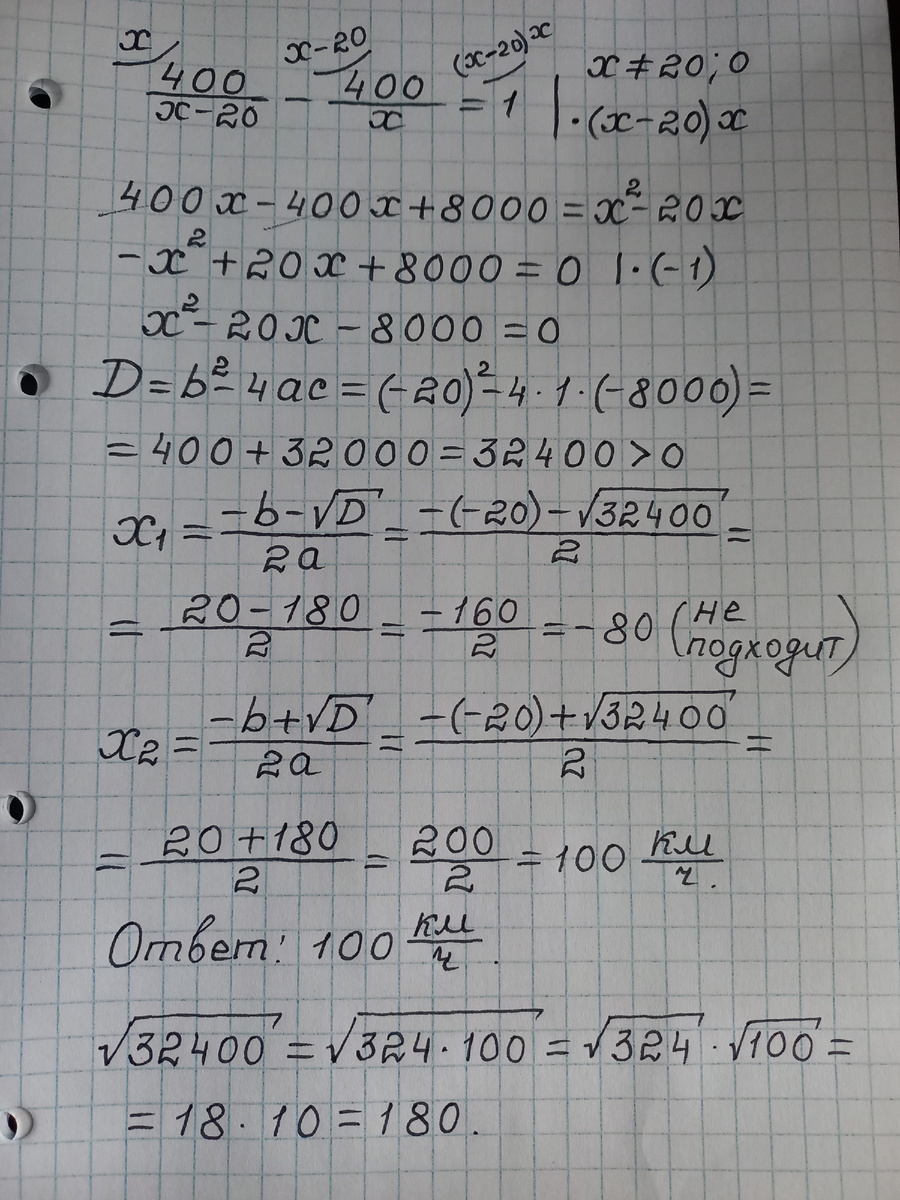 x/ 400/(x-20) - x-20/ 400/x = (x-20)x/ 1 | x ≠ 20; 0
·(x-20)x
400x - 400x + 8000 = x² - 20x
-x² + 20x + 8000 = 0 |·(-1)
x² - 20x - 8000 = 0
D = b² - 4ac = (-20)² - 4·1·(-8000) =
= 400 + 32000 = 32400 > 0
x₁ = (-b-√D)/(2a) = (-(-20)-√32400)/2 =
= (20-180)/2 = -160/2 = -80 (не подходит)
x₂ = (-b+√D)/(2a) = (-(-20)+√32400)/2 =
= (20+180)/2 = 200/2 = 100 км/ч.
Ответ: 100 км/ч.
√32400 = √(324·100) = √324 · √100 =
= 18 · 10 = 180.